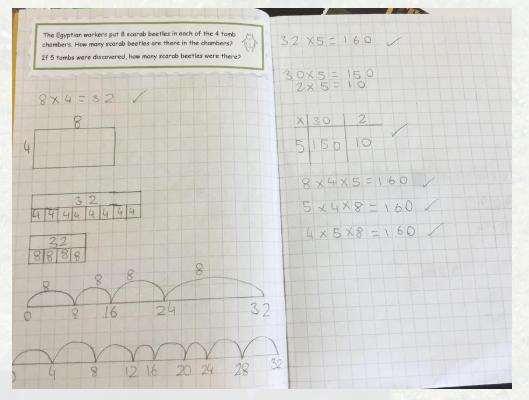 The Egyptian workers put 8 scarab beetles in each of the 4 tomb
chambers. How many scarab beetles are there in the chambers?
If 5 tombs were discovered, how many scarab beetles were there?
8 × 4 = 32 ✓
8
4
32
4 4 4 4 4 4 4 4
32
8 8 8 8
8 8 8 8
0 8 16 24 32
4 8 12 16 20 24 28 32
32 × 5 = 160 ✓
30 × 5 = 150
2 × 5 = 10
× 30 2
5 150 10 ✓
8 × 4 × 5 = 160 ✓
5 × 4 × 8 = 160 ✓
4 × 5 × 8 = 160 ✓